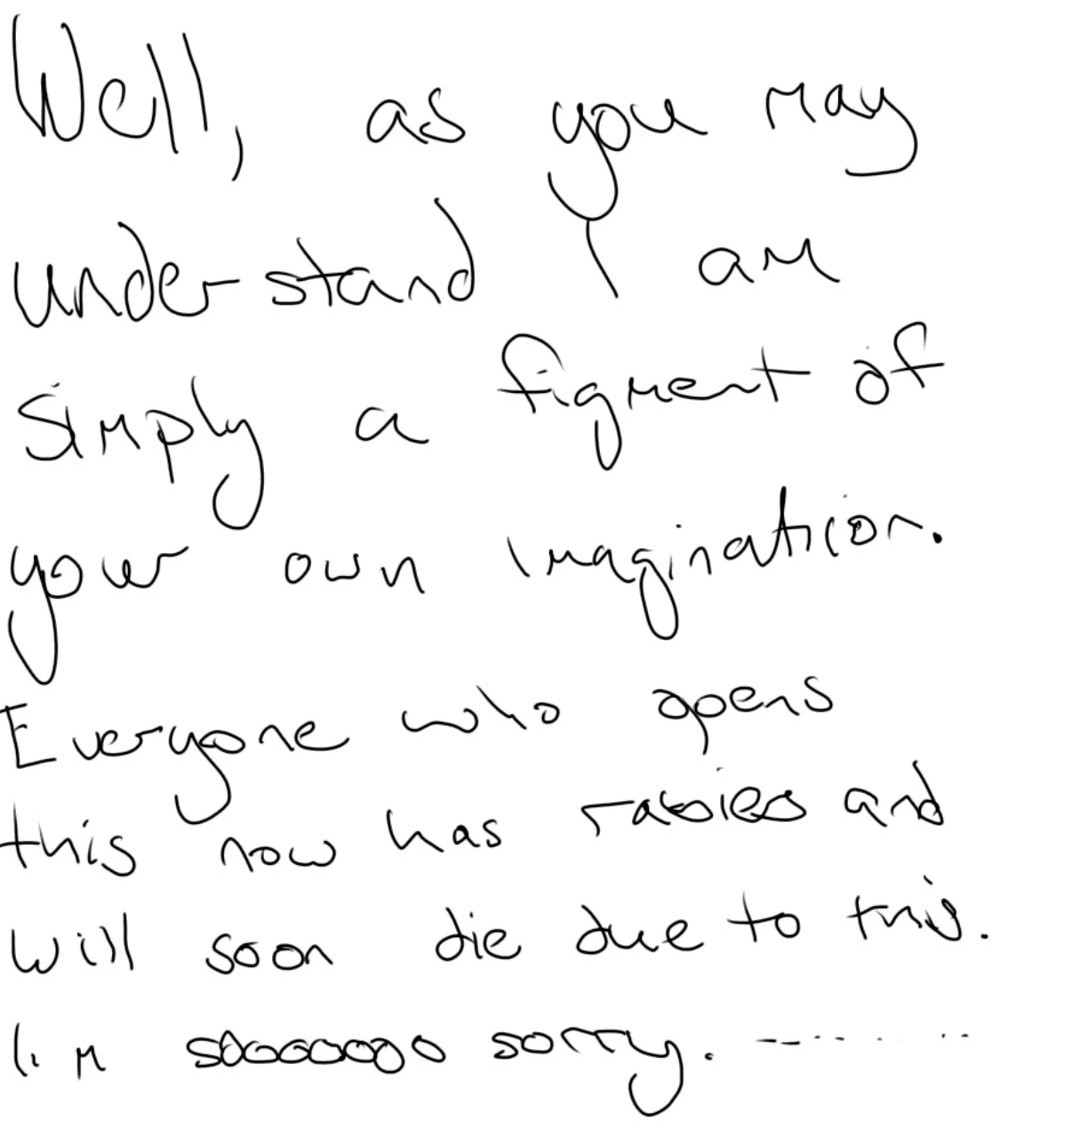 Well, as you may
understand I am
simply a figment of
your own imagination.
Everyone who opens
this now has rabies and
will soon die due to this.
I'm sooooooo sorry. ---......